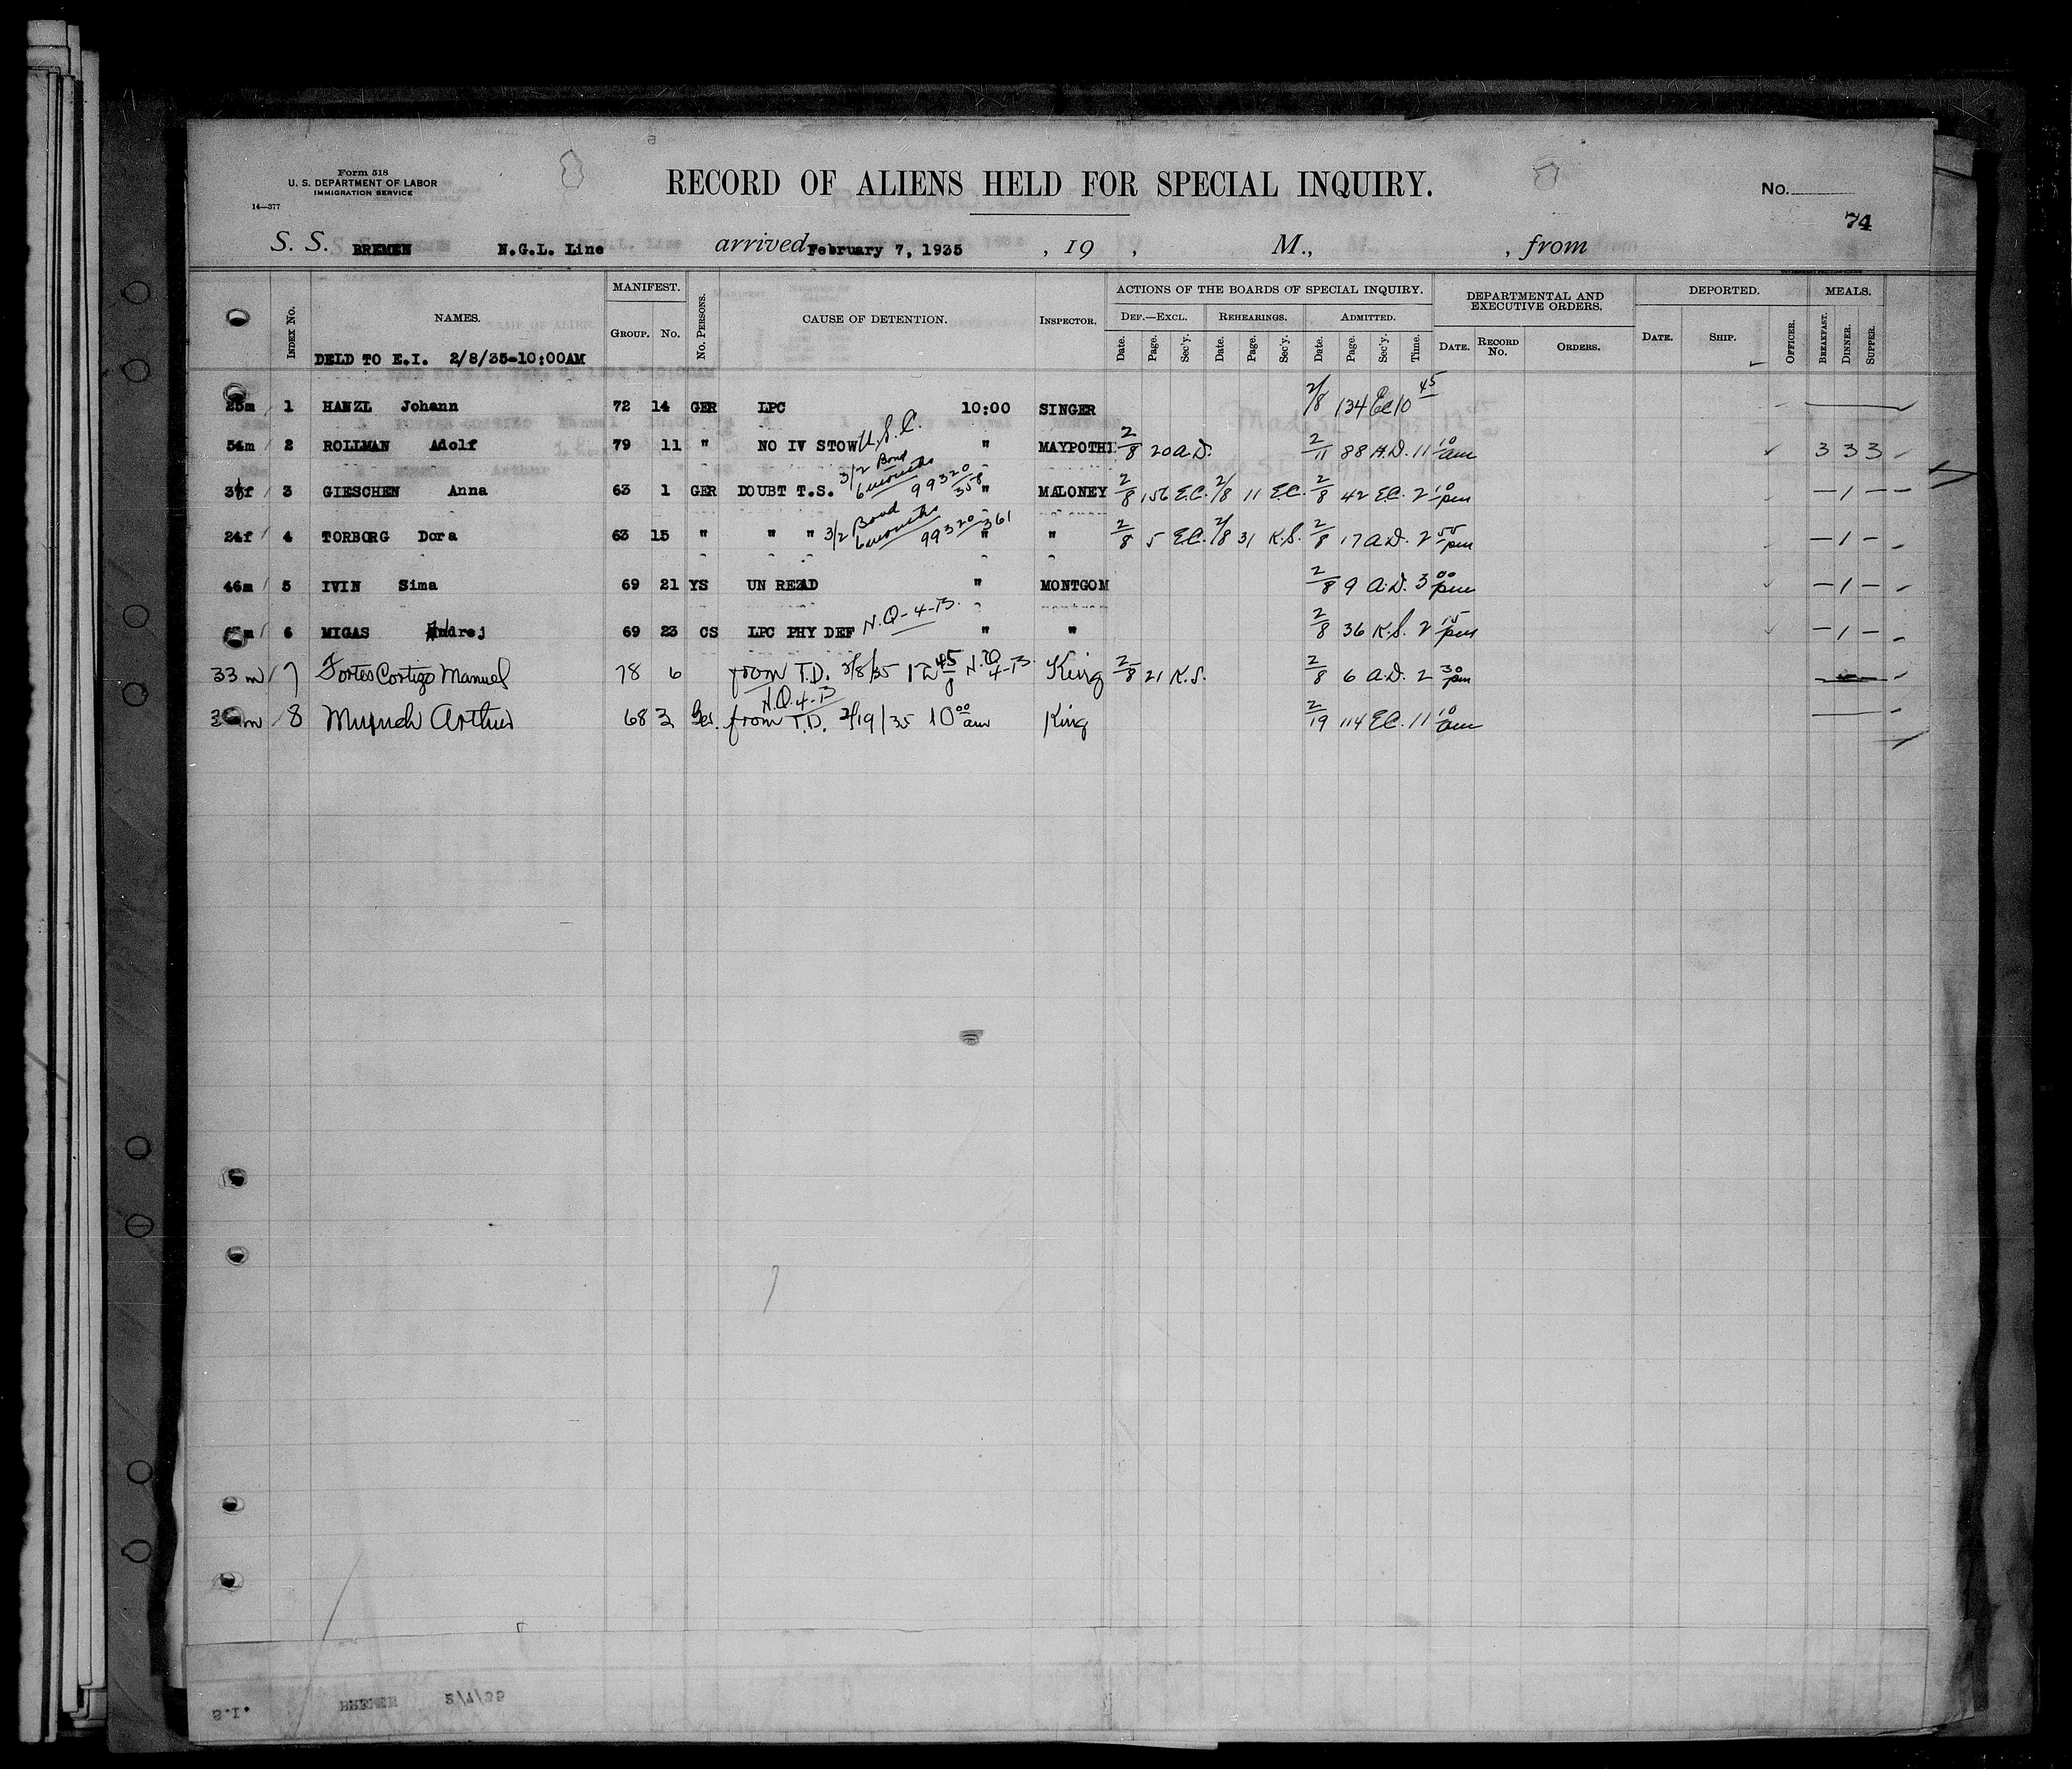 Form 518
U. S. DEPARTMENT OF LABOR
IMMIGRATION SERVICE
14—377
RECORD OF ALIENS HELD FOR SPECIAL INQUIRY.
No.
74
S. S. BREMEN N.G.L. Line arrived February 7, 1935 , 19 , M., , from
INDEX No. NAMES. MANIFEST. GROUP. No. No. PERSONS. CAUSE OF DETENTION. INSPECTOR. ACTIONS OF THE BOARDS OF SPECIAL INQUIRY. DEPARTMENTAL AND EXECUTIVE ORDERS. DEPORTED. MEALS.
DEF.—EXCL. REHEARINGS. ADMITTED.
Date. Page. Sec'y. Date. Page. Sec'y. Date. Page. Sec'y. Time. DATE. RECORD No. ORDERS. DATE. SHIP. OFFICER. BREAKFAST. DINNER. SUPPER.
DELD TO E.I. 2/8/35-10:00AM
25m 1 HANZL Johann 72 14 GER LPC 10:00 SINGER 2/8 134 EC 10 45
54m 2 ROLLMAN Adolf 79 11 " NO IV STOW U.S.C. " MAYPOTH 2/8 20 A.D. 2/11 88 H.D. 11 10 am 3 3 3
f 3 GIESCHEN Anna 63 1 GER DOUBT T.S. 3/2 Bond 6 months 99320/358 " MALONEY 2/8 156 E.C. 2/8 11 E.C. 2/8 42 E.C. 2 10 pm — 1 —
24f 4 TORBORG Dora 63 15 " " " 3/2 Bond 6 months 99320/361 " " 2/8 5 E.C. 2/8 31 K.S. 2/8 17 A.D. 2 55 pm — 1 —
46m 5 IVIN Sima 69 21 YS UN READ " MONTGOM 2/8 9 A.D. 3 00 pm — 1 —
m 6 MIGAS Andrej 69 23 CS LPC PHY DEF N.Q-4-B. " " 2/8 36 K.S. 2 15 pm — 1 —
33 m 7 Fortes Cortizo Manuel 78 6 from T.D. 2/8/35 12 45 N.Q 4-B. King 2/8 21 K.S. 2/8 6 A.D. 2 30 pm
N.Q.4-B
m 8 Arthur 68 3 Ger. from T.D. 2/19/35 10 00 am King 2/19 114 E.C. 11 10 am
S.I. BREMEN 2/7/35